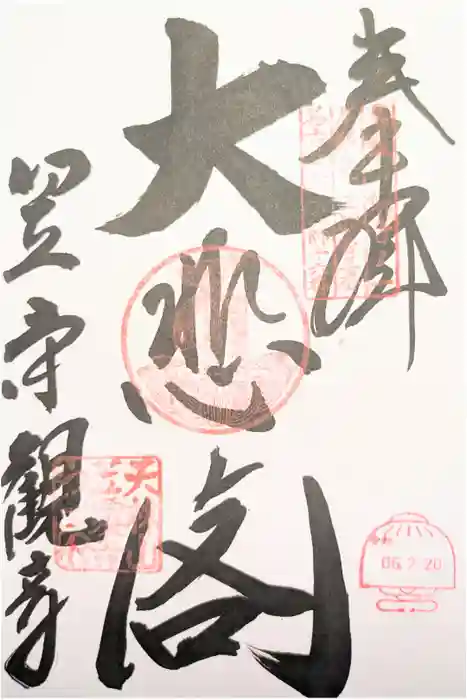 奉拝
大悲閣
笠寺観音
06.2.20